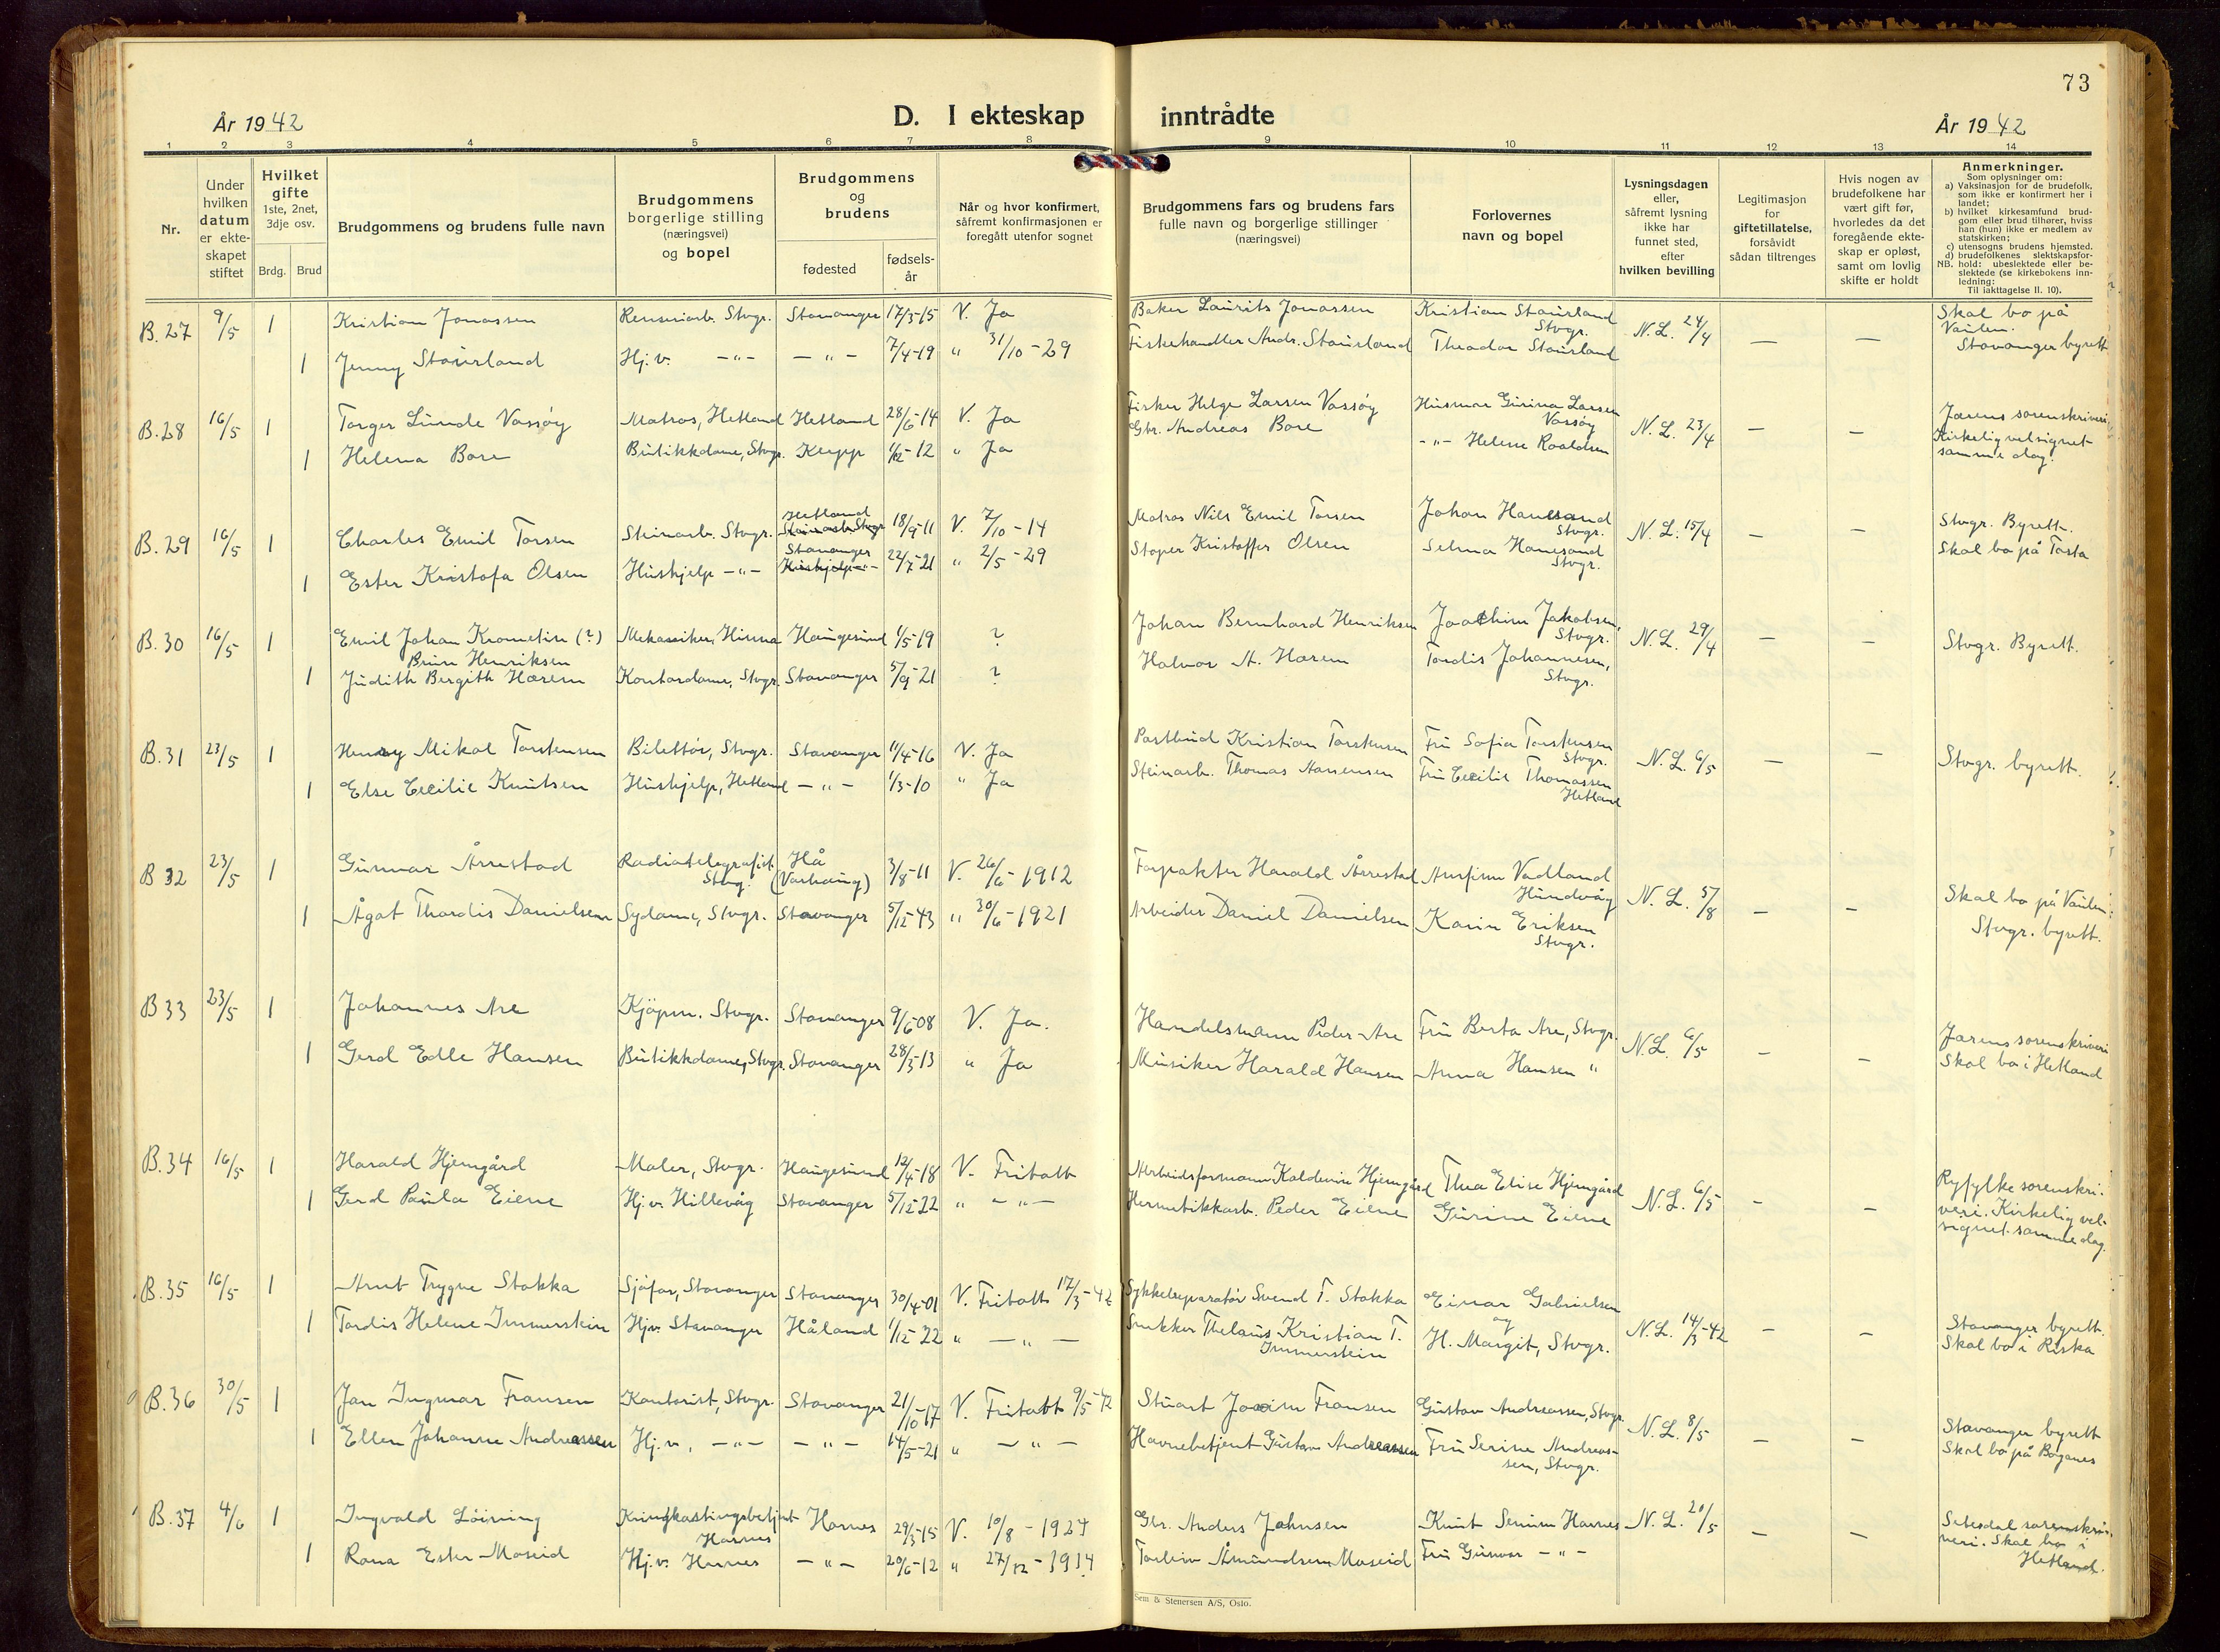 73
År 1942
D. I ekteskap inntrådte
År 1942
1 2 3 4 5 6 7 8 9 10 11 12 13 14
Nr.
Under hvilken datum er ekteskapet stiftet
Hvilket gifte 1ste, 2net, 3dje osv.
Brdg. Brud
Brudgommens og brudens fulle navn
Brudgommens borgerlige stilling (næringsvei) og bopel
Brudgommens og brudens
fødested
fødselsår
Når og hvor konfirmert, såfremt konfirmasjonen er foregått utenfor sognet
Brudgommens fars og brudens fars fulle navn og borgerlige stillinger (næringsvei)
Forlovernes navn og bopel
Lysningsdagen eller, såfremt lysning ikke har funnet sted, efter hvilken bevilling
Legitimasjon for giftetillatelse, forsåvidt sådan tiltrenges
Hvis nogen av brudefolkene har vært gift før, hvorledes da det foregående ekteskap er opløst, samt om lovlig skifte er holdt
Anmerkninger.
Som oplysninger om:
a) Vaksinasjon for de brudefolk, som ikke er konfirmert her i landet;
b) hvilket kirkesamfund brudgom eller brud tilhører, hviss han (hun) ikke er medlem av statskirken;
c) utensogns brudens hjemsted.
d) brudefolkenes slektskapsforhold: ubeslektede eller beslektede (se kirkebokens innledning:
NB. Til iakttagelse II. 10).
B.27 9/5 1 Kristian Jonassen Renseriarb. Stvgr. Stavanger 17/3-15 V. Ja Baker Laurits Jonassen Kristian Staurland Stvgr. N.L. 24/4 — — Skal bo på Vaulen.
1 Jenny Staurland Hj.v. —"— —"— 7/4-19 " 31/10-29 Fiskehandler Andr. Staurland Theodor Staurland Stavanger byrett
B.28 16/5 1 Torger Lunde Vassøy Matros, Hetland Hetland 28/6-14 V. Ja Fisker Helge Larsen Vassøy Husmor Gurina Larsen Vassøy N.L. 23/4 — — Jærens sorenskriveri
1 Helena Bore Butikkdame, Stvgr. Klepp 1/12-12 " Ja Gbr. Andreas Bore —"— Helene Roaldsen Kirkelig velsignet samme dag.
B.29 16/5 1 Charles Emil Torsen Steinarb. Stvgr. Hetland 18/9-11 V. 7/10-14 Matros Nils Emil Torsen Johan Hanesand Stvgr. N.L. 15/4 — — Stvgr. Byrett.
1 Ester Kristofa Olsen Hushjelp —"— Stavanger 22/7-21 " 2/5-29 Støper Kristoffer Olsen Selma Hanesand Stvgr. Skal bo på Tasta
B.30 16/5 1 Emil Johan Krometin (?) Brun Henriksen Mekaniker, Hinna Haugesund 1/5-19 ? Johan Bernhard Henriksen Joachim Jakobsen, Stvgr. N.L. 29/4 — — Stvgr. Byrett.
1 Judith Bergith Hærem Kontordame, Stvgr. Stavanger 5/9-21 ? Halvor A. Hærem Tordis Johannesen, Stvgr.
B.31 23/5 1 Henry Mikal Torstensen Bilettør, Stvgr. Stavanger 11/4-16 V. Ja Postbud Kristian Torstensen Fru Sofia Torstensen Stvgr. N.L. 6/5 — — Stvgr. byrett.
1 Else Cecilie Knutsen Hushjelp, Hetland —"— 1/3-10 " Ja Steinarb. Thomas Fru Cecilie Thomassen Hetland
B 32 23/5 1 Gunnar Årrestad Radiotelegrafist Stvg. Hå (Varhaug) 3/8-11 V. 26/6-1912 Forpakter Harald Årrestad Arnfinn Vadland Hundvåg N.L. 5/8 — — Skal bo på Vaulen.
1 Ågot Thordis Danielsen Sydame, Stvgr. Stavanger 5/12-43 " 30/6-1921 Arbeider Daniel Danielsen Karin Eriksen Stvgr. Stvgr. byrett.
B 33 23/5 1 Johannes Are Kjøpm. Stvgr. Stavanger 9/6-08 V. Ja. Handelsmann Peder Are Fru Berta Are, Stvgr. N.L. 6/5 — — Jærens sorenskriveri
1 Gerd Edle Hansen Butikkdame, Stvgr. Stavanger 28/3-13 " Ja Musiker Harald Hansen Anna Hansen " Skal bo i Hetland
B.34 16/5 1 Harald Hjemgård Maler, Stvgr. Haugesund 12/4-18 V. Fritatt Arbeidsformann Hjemgård Thea Elise Hjemgård N.L. 6/5 — — Ryfylke sorenskriveri. Kirkelig velsignet samme dag.
1 Gerd Paula Eiene Hj.v. Hillevåg Stavanger 5/12-22 " —"— Hermetikkarb. Peder Eiene Gurine Eiene
B.35 16/5 1 Arnt Trygve Stokka Sjåfør, Stavanger Stavanger 30/4-01 V. Fritatt 17/3-42 Sykkelreparatør Svend T. Stokka Einar Gabrielsen og N.L. 14/3-42 — — Stavanger byrett.
1 Tordis Helene Immerstein Hjv. Stavanger Håland 1/12-22 " —"— Snekker Kristian T. Immerstein H. Margit, Stvgr. Skal bo i Riska
B.36 30/5 1 Jan Ingmar Fransen Kontorist, Stvgr. Stavanger 21/10-17 V. Fritatt 9/5-42 Stuart Joacim Fransen Gustav Andreassen, Stvgr. N.L. 8/5 — — Stavanger byrett
1 Ellen Johanne Andreassen Hj.v, —"— —"— 14/5-21 " —"— Havnebetjent Gustav Andreassen Fru Serine Andreassen, Stvgr. Skal bo på Boganes
B.37 4/6 1 Ingvald Løining Kringkastingsbetjent Hornes Hornes 29/3-15 V. 10/8-1924 Gbr. Anders Johnsen Knut Hornes N.L. 20/5 — — Setesdal sorenskriveri. Skal bo i Hetland.
1 Rona Ester Moseid Hj.v. Hornes —"— 20/6-12 " 27/12-1914 Torleiv Åmundsen Moseid Fru Gunvor —"—
Sem & Stenersen A/S, Oslo.